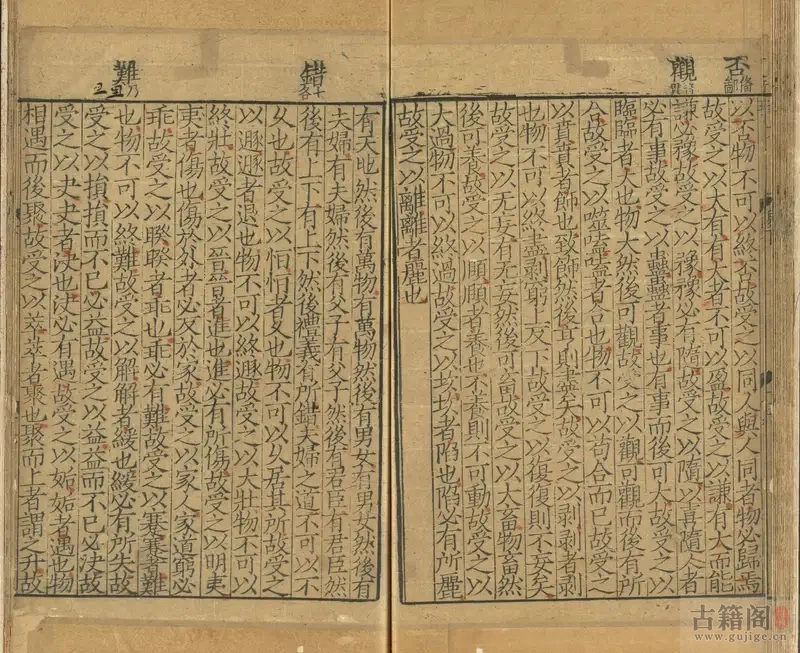 否備鄙
觀
以否物不可以終否故受之以同人與人同者物必歸焉
故受之以大有有大者不可以盈故受之以謙有大而能
謙必豫故受之以豫豫必有隨故受之以隨以喜隨人者
必有事故受之以蠱蠱者事也有事而後可大故受之以
臨臨者大也物大然後可觀故受之以觀可觀而後有所
合故受之以噬嗑嗑者合也物不可以苟合而已故受之
以賁賁者飾也致飾然後亨則盡矣故受之以剥剥者剥
也物不可以終盡剥窮上反下故受之以復復則不妄矣
故受之以无妄有无妄然後可畜故受之以大畜物畜然
後可養故受之以頤頤者養也不養則不可動故受之以
大過物不可以終過故受之以坎坎者陷也陷必有所麗
故受之以離離者麗也
錯七各
難乃旦
有天地然後有萬物有萬物然後有男女有男女然後有
夫婦有夫婦然後有父子有父子然後有君臣有君臣然
後有上下有上下然後禮義有所錯夫婦之道不可以不
久也故受之以恒恒者久也物不可以久居其所故受之
以遯遯者退也物不可以終遯故受之以大壯物不可以
終壯故受之以晉晉者進也進必有所傷故受之以明夷
夷者傷也傷於外者必反於家故受之以家人家道窮必
乖故受之以睽睽者乖也乖必有難故受之以蹇蹇者難
也物不可以終難故受之以解解者緩也緩必有所失故
受之以損損而不已必益故受之以益益而不已必決故
受之以夬夬者決也決必有遇故受之以姤姤者遇也物
相遇而後聚故受之以萃萃者聚也聚而上者謂之升故
古籍阁
www.gujige.cn